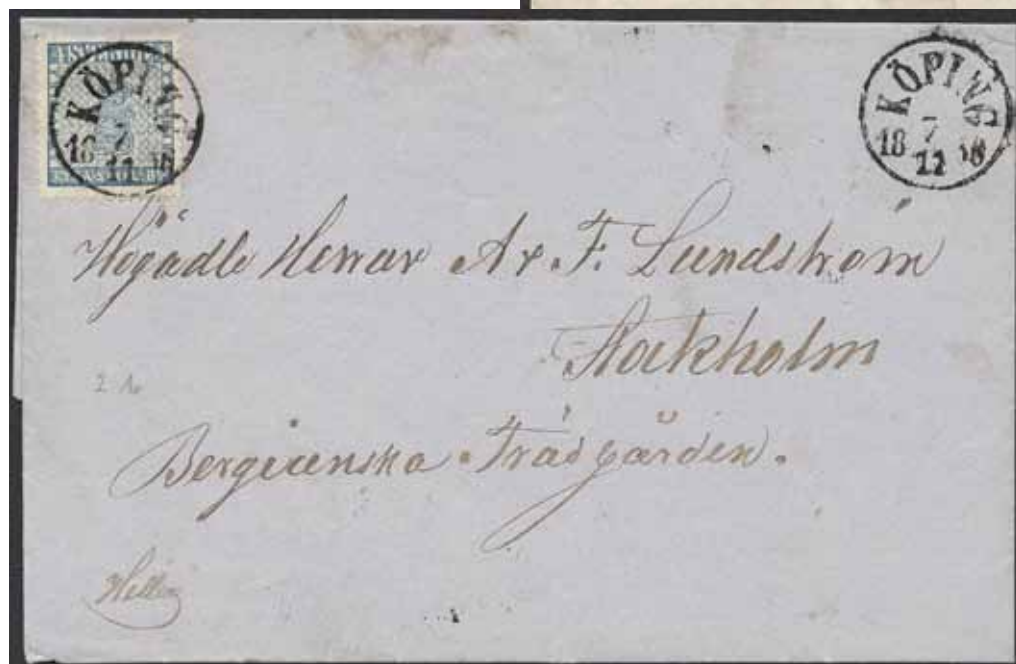 KÖPING
18 7
11
KÖPING
18 7
11
Högädle Herrar A & F. Lundström
Stockholm
Bergianska Trädgården.